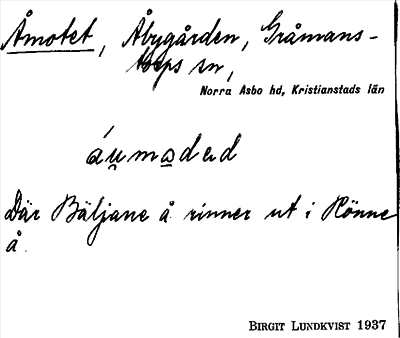 Åmotet, Åbygården, Gråmans-
torps sn,
Norra Asbo hd, Kristianstads län
áu̯mo̲dəd
Där Bäljane å rinner ut i Rönne
å.
BIRGIT LUNDKVIST 1937